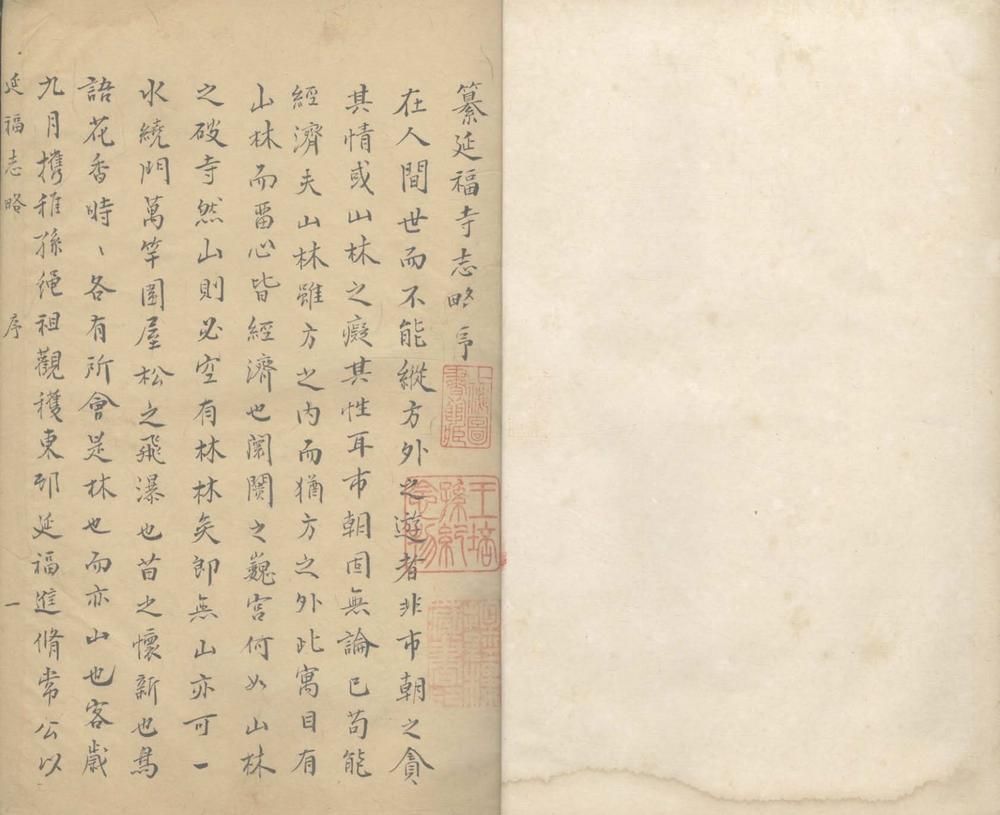 纂延福寺志略序
在人間世而不能縱方外之遊者非市朝之貪
其情或山林之癡其性耳市朝固無論已苟能
經濟夫山林雖方之內而猶方之外此寓目有
山林而畱心皆經濟也闤闠之巍宮何如山林
之破寺然山則必空有林林矣即無山亦可一
水繞門萬竿圍屋松之飛瀑也苗之懷新也鳥
語花香時〻各有所會是林也而亦山也客歲
九月攜稚孫繩祖觀穫東邨延福進脩常公以
延福志略 序 一
王培孫紀念物